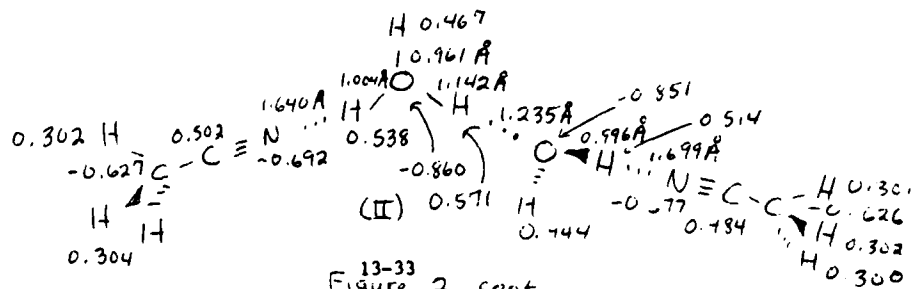 H 0.467
0.961 Å
1.004Å O 1.142 Å
1.640Å H H 1.235Å -0.851
0.302 H 0.502 N 0.538 0.996Å 0.514
-0.627 C - C ≡ -0.692 -0.860 O H 1.699Å
H H (II) 0.571 H N ≡ C - C H
0.304 -0.626
H 0.302
H 0.300
13-33
Figure 2 cont